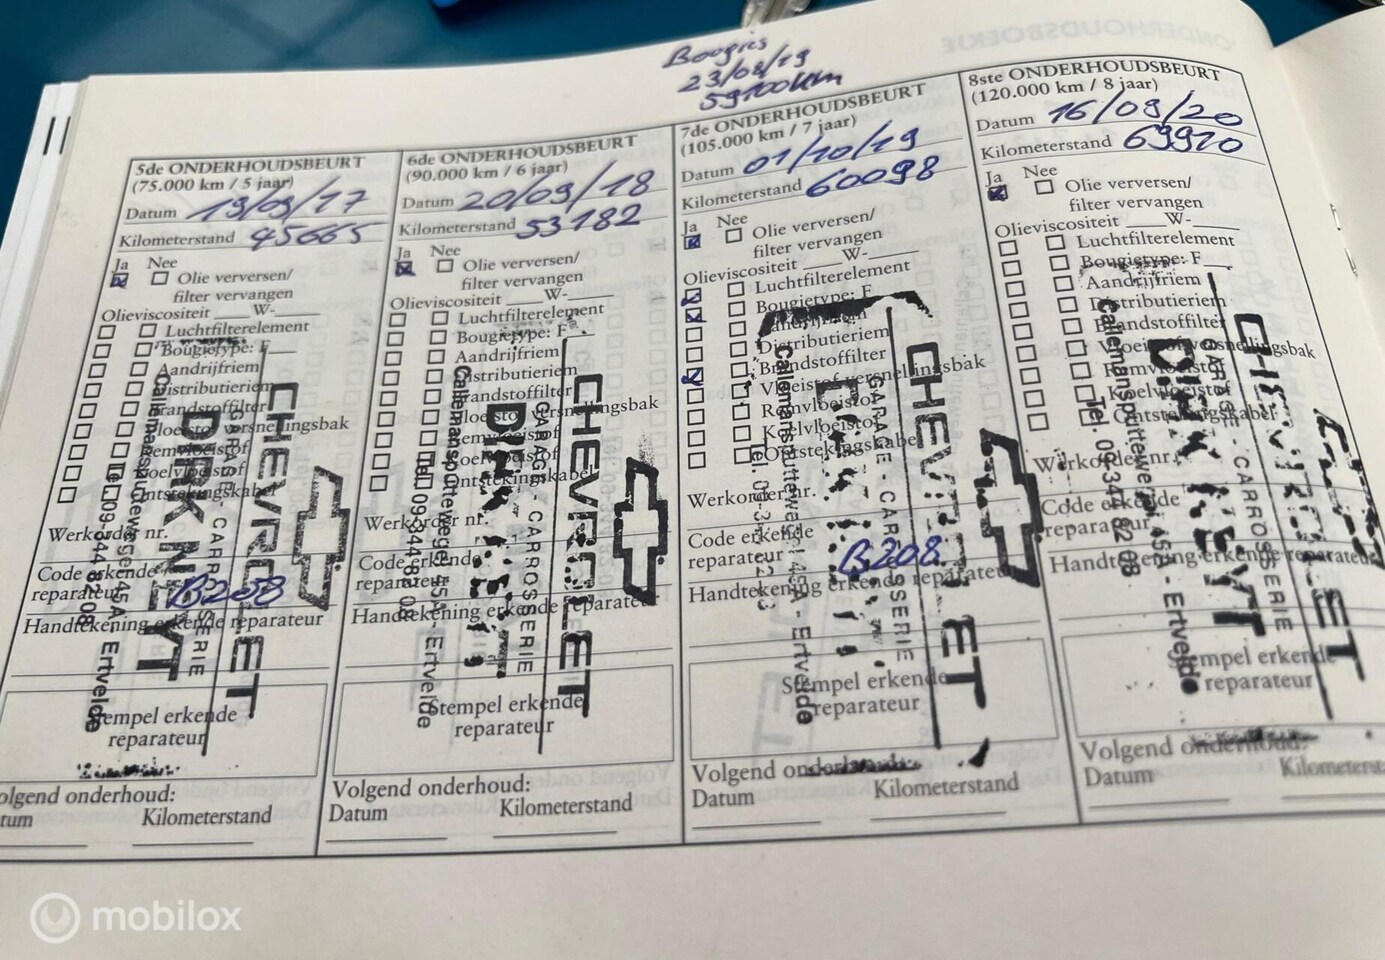 Boogies
23/08/19
59100km
5de ONDERHOUDSBEURT
(75.000 km / 5 jaar)
Datum 19/09/17
Kilometerstand 45665
Ja Nee
Olie verversen/
filter vervangen
Olieviscositeit ____W-____
Luchtfilterelement
Bougietype: F___
Aandrijfriem
Distributieriem
Brandstoffilter
Vloeistof versnellingsbak
Remvloeistof
Koelvloeistof
Ontstekingskabel
Werkorder nr.
Code erkende
reparateur B208
Handtekening erkende reparateur
Stempel erkende
reparateur
CHEVROLET
GARAGE - CARROSSERIE
DIRK NEYT
Callemansputteweg 45A - Ertvelde
Tel. 09 344 82 08
Volgend onderhoud:
Datum Kilometerstand
6de ONDERHOUDSBEURT
(90.000 km / 6 jaar)
Datum 20/09/18
Kilometerstand 53182
Ja Nee
Olie verversen/
filter vervangen
Olieviscositeit ____W-____
Luchtfilterelement
Bougietype: F___
Aandrijfriem
Distributieriem
Brandstoffilter
Vloeistof versnellingsbak
Remvloeistof
Koelvloeistof
Ontstekingskabel
Werkorder nr.
Code erkende
reparateur
Handtekening erkende reparateur
Stempel erkende
reparateur
CHEVROLET
GARAGE - CARROSSERIE
Callemansputteweg 45A - Ertvelde
Tel. 09 344 82 08
Volgend onderhoud:
Datum Kilometerstand
7de ONDERHOUDSBEURT
(105.000 km / 7 jaar)
Datum 01/10/19
Kilometerstand 60098
Ja Nee
Olie verversen/
filter vervangen
Olieviscositeit ____W-____
Luchtfilterelement
Bougietype: F
Aandrijfriem
Distributieriem
Brandstoffilter
Vloeistof versnellingsbak
Remvloeistof
Koelvloeistof
Ontstekingskabel
Werkorder nr.
Code erkende
reparateur B208
Handtekening erkende reparateur
Stempel erkende
reparateur
CHEVROLET
GARAGE - CARROSSERIE
Callemansputteweg 45A - Ertvelde
Volgend onderhoud:
Datum Kilometerstand
8ste ONDERHOUDSBEURT
(120.000 km / 8 jaar)
Datum 16/09/20
Kilometerstand 69910
Ja Nee
Olie verversen/
filter vervangen
Olieviscositeit ____W-____
Luchtfilterelement
Bougietype: F___
Aandrijfriem
Distributieriem
Brandstoffilter
Vloeistof versnellingsbak
Remvloeistof
Koelvloeistof
Ontstekingskabel
Werkorder nr.
Code erkende
reparateur
Handtekening erkende reparateur
Stempel erkende
reparateur
CHEVROLET
GARAGE - CARROSSERIE
Callemansputteweg 45A - Ertvelde
Tel. 09 344 82 08
Volgend onderhoud:
Datum Kilometerstand
mobilox